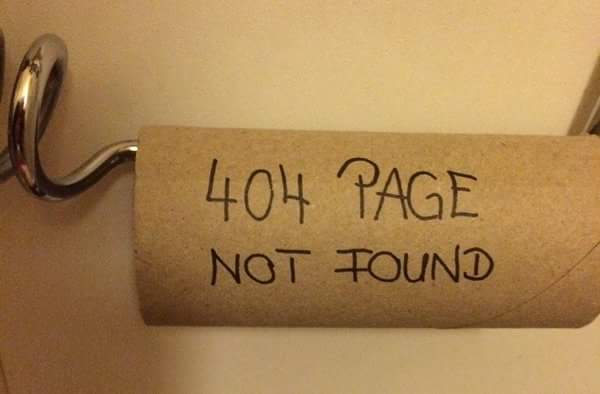 404 PAGE
NOT FOUND